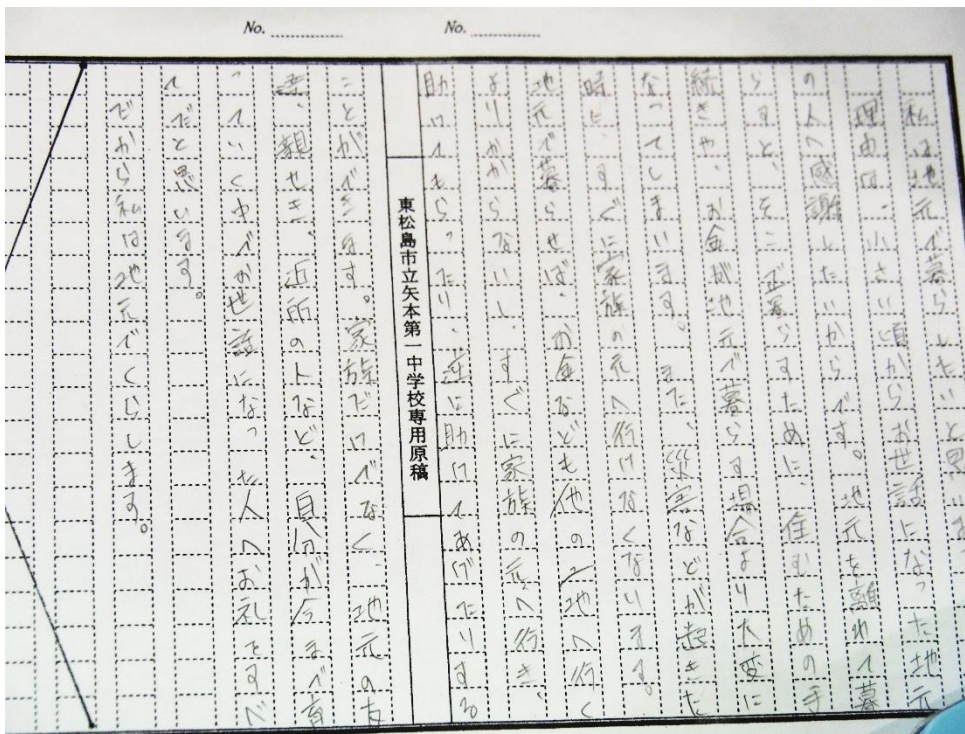 No.
No.
私は地元で暮らしたいと思います。
理由は、小さい頃からお世話になった地元
の人へ感謝したいからです。地元を離れて暮
らすと、そこで暮らすために、住むための手
続きや、お金が地元で暮らす場合より大変に
なってしまいます。また、災害などが起きた
時に、すぐに家族の元へ行けなくないります。
地元で暮らせば、お金なども他の地へ行く
よりかからないし、すぐに家族の元へ行き、
助けてもらったり、逆に助けてあげたりする
東松島市立矢本第一中学校専用原稿
ことができます。家族だけでなく、地元の友
達、親せき、近所の人など、自分が今まで育
っていく中でお世話になった人へお礼をすべ
てだと思います。
だから私は地元でくらします。